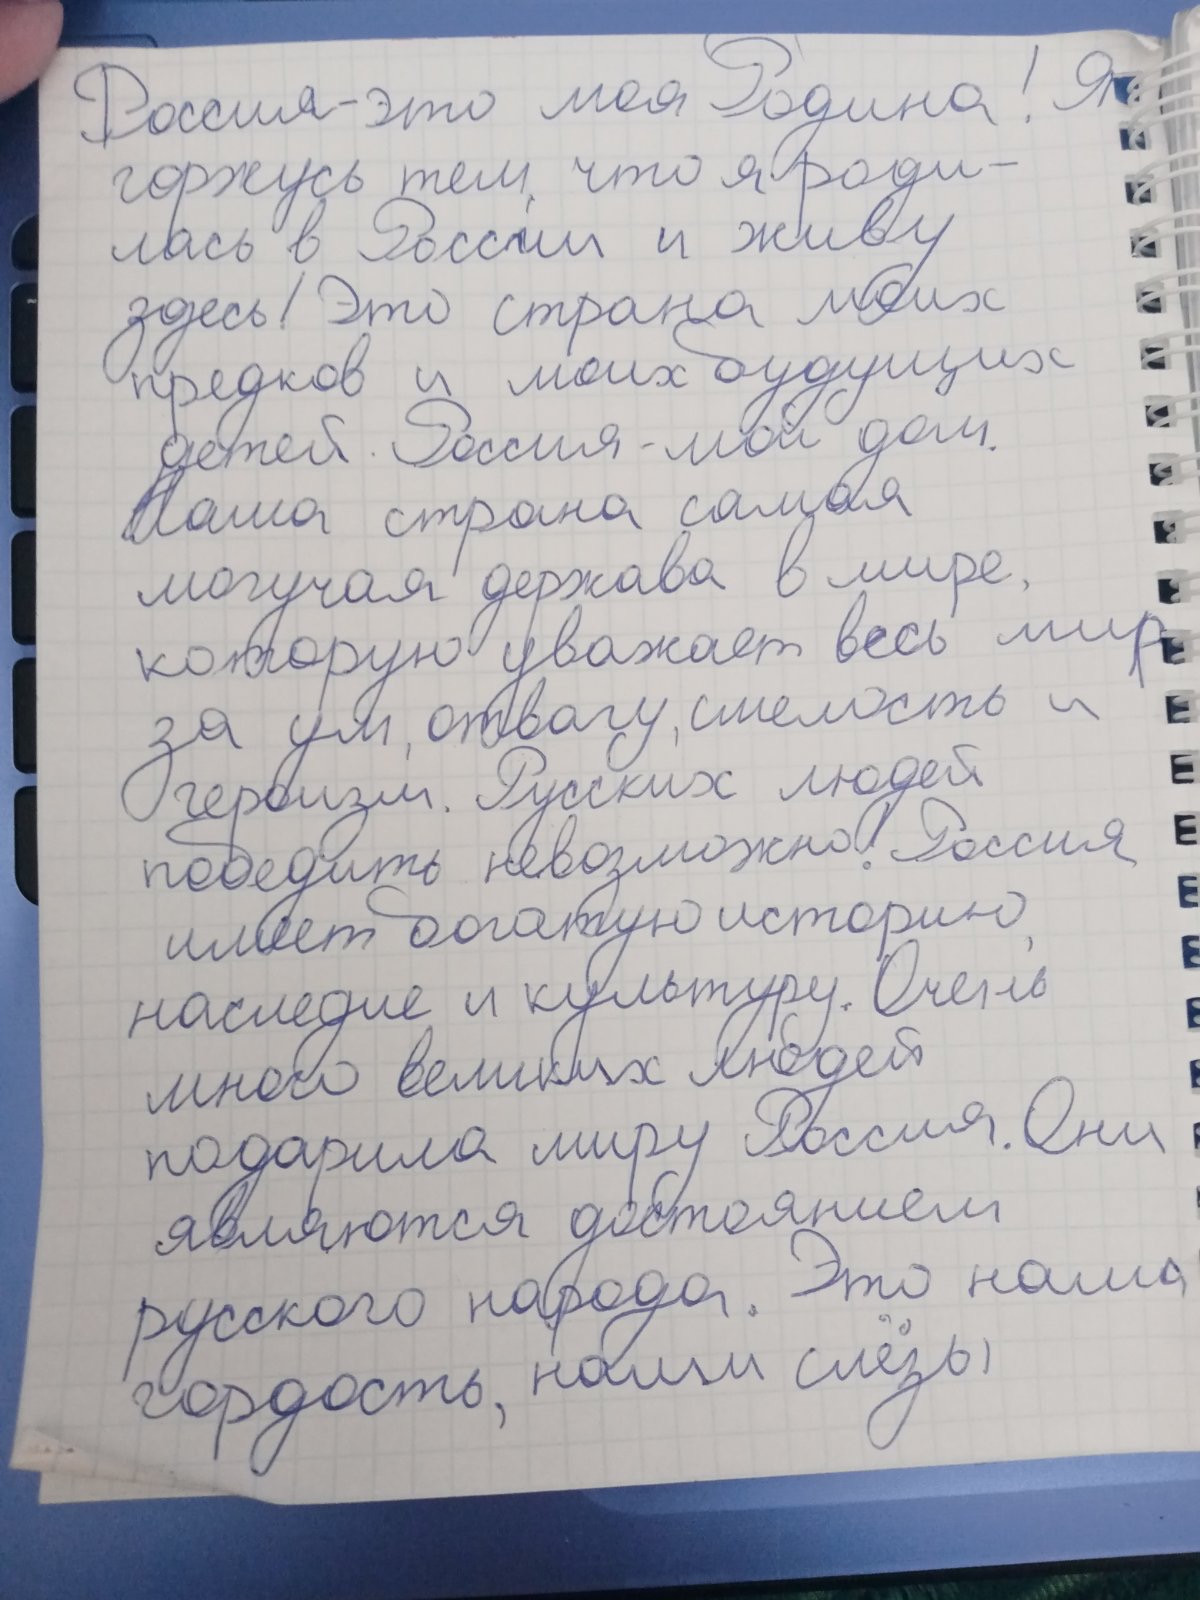 Россия-это моя Родина! Я
горжусь тем, что я роди-
лась в России и живу
здесь! Это страна моих
предков и моих будущих
детей. Россия-мой дом.
Наша страна самая
могучая держава в мире,
которую уважает весь мир
за ум, отвагу, смелость и
героизм. Русских людей
победить невозможно! Россия
имеет богатую историю,
наследие и культуру. Очень
много великих людей
подарила миру Россия. Они
являются достоянием
русского народа. Это наша
гордость, наши слёзы